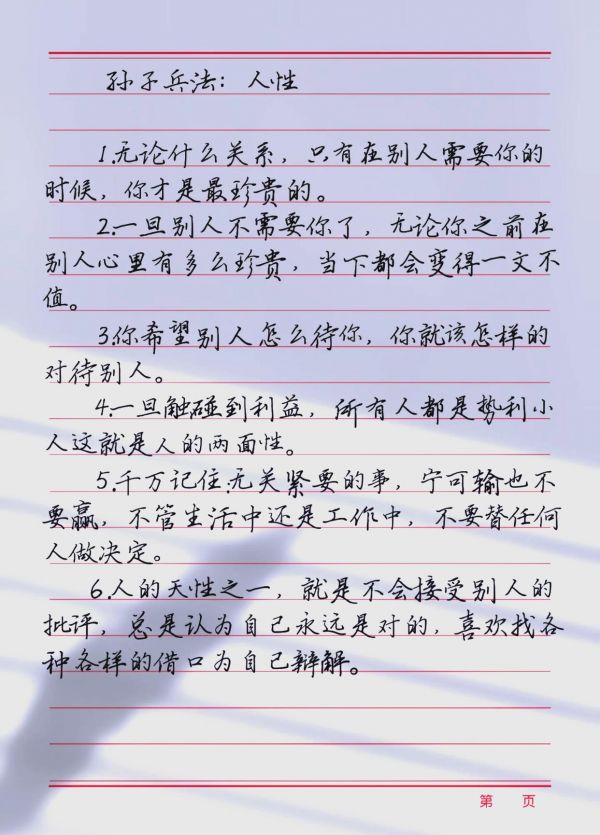 孙子兵法：人性
1.无论什么关系，只有在别人需要你的
时候，你才是最珍贵的。
2.一旦别人不需要你了，无论你之前在
别人心里有多么珍贵，当下都会变得一文不
值。
3.你希望别人怎么待你，你就该怎样的
对待别人。
4.一旦触碰到利益，所有人都是势利小
人这就是人的两面性。
5.千万记住.无关紧要的事，宁可输也不
要赢，不管生活中还是工作中，不要替任何
人做决定。
6.人的天性之一，就是不会接受别人的
批评，总是认为自己永远是对的，喜欢找各
种各样的借口为自己辩解。
第 页